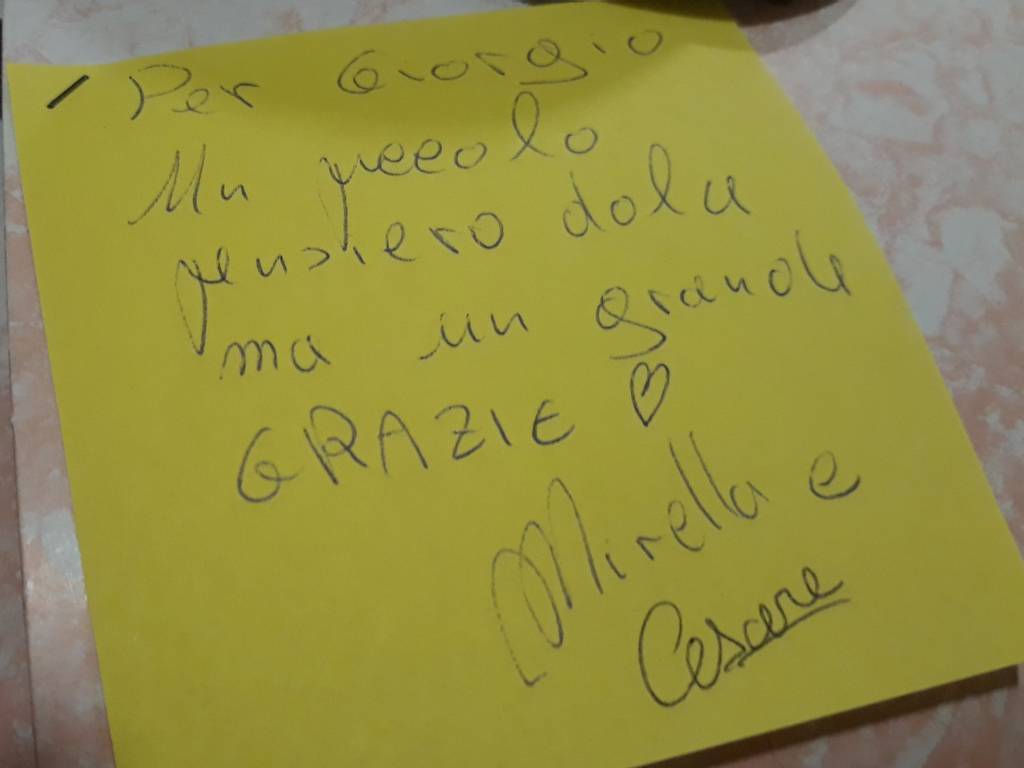 Per Giorgio
Un piccolo
pensiero dolce
ma un grande
GRAZIE
Mirella e
Cesare